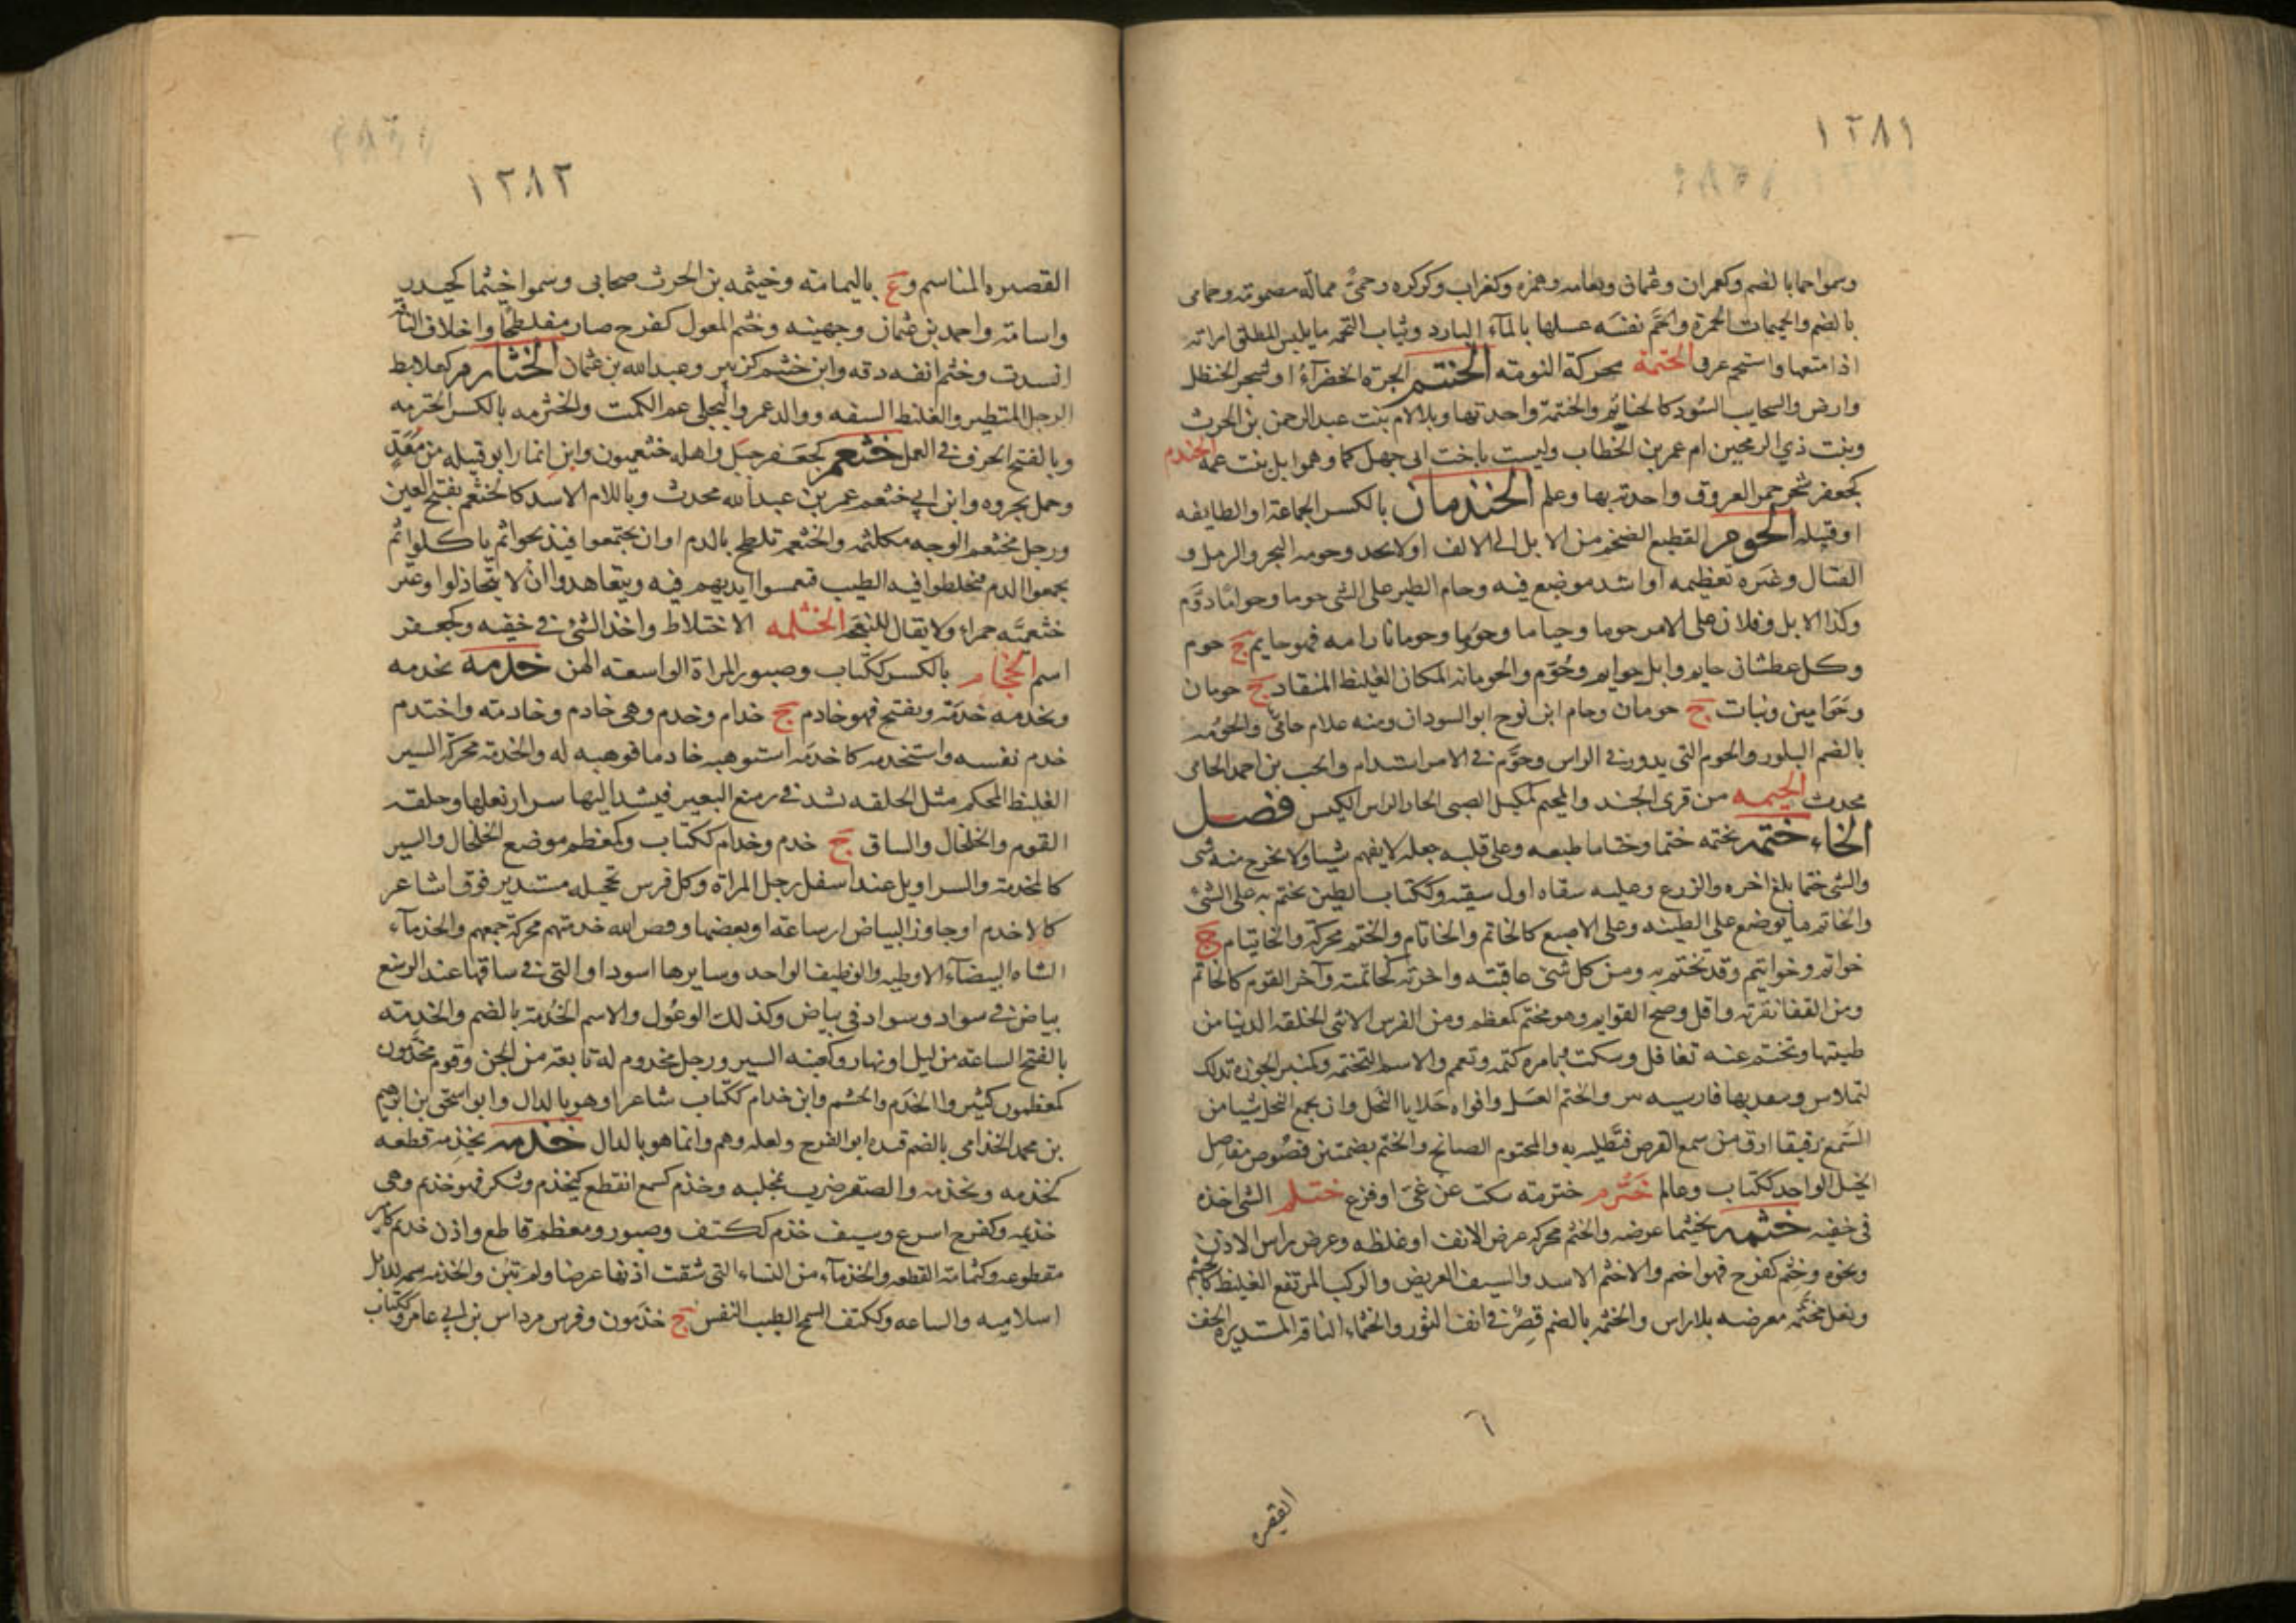 ١٢٨١
وسموا حما بالضم وكعمران وعثمان ونعامه وهمزه وكغراب وكركره وحمى مماله مضمومته وحمامى
بالضم والحميمات الحمرة واحم نفسه غسلها بالمآء البارد وثياب التحمه ما يلبس المطلق امراته
اذا متعها واستحم عرق الحتمة محركة النومته الحنتم الجرة الخضرآء او شجر الحنظل
وارض والسحاب السود كالحناتم والحنتمة واحدتها وبلالام بنت عبد الرحمن بن الحرث
وبنت ذي الرمحين ام عمر بن الخطاب وليست باخت ابى جهل كما وهموا بل بنت عمه الحندم
كجعفر شجر حمر العروق واحدته بها وعلم الحندمان بالكسر الجماعة او الطايفه
او قبيله الحوم القطيع الضخم من الابل الى الالف او لا يحد وحومه البحر والرمل و
القتال وغيره تعظيمه او اشد موضع فيه وحام الطير على الشى حوما وحوامًا دوّم
وكذا الابل وفلان على الامر حوما وحياما وحوما وحومانا رامه فهو حايم ج حوم
وكل عطشان حايم وابل حوايم وحوّم والحومانه المكان الغليظ المنقاد ج حومان
وحوامين ونبات ج حومان وحام ابن نوح ابو السودان ومنه غلام حامىّ والحومه
بالضم البلور والحوم التى يدور فى الراس وحوّم فى الامر استدام واحمد بن احمد الحامى
محدث الحيمه من قرى الجند والمحيم كمكيل الصبى الحار الراس الكيس فصل
الخاء ختمه يختمه ختما وختاما طبعه وعلى قلبه جعله لا يفهم شيا ولا يخرج منه شى
والشى ختما بلغ اخره والزرع وعليه سقاه اول سقيه وككتاب الطين يختم به على الشئ
والخاتم ما يوضع على الطينه وعلى الاصبع كالخاتم والخاتام والختم محركة والخاتيام ج
خواتم وخواتيم وقد تختم به ومن كل شى عاقبته واخرته كخاتمته وآخر القوم كالخاتم
ومن القفا نقرته واقل وضح القوايم وهو مختم كمعظم ومن الفرس الانثى الحلقه الدنيا من
طبيتها وتختم عنه تغافل وسكت وبامره كتمه وتعمم والاسم التختمه وكمنبر الجوزه تدلك
لتملاس وينقد بها فارسيه والختم العسل وافواه خلايا النحل وان يجمع النحل شيا من
الشمع رقيقا ارق من شمع القرص فتطليه به والمختوم الصاع والختم بضمتين فصوص مفاصل
الخيل الواحد ككتاب وعالم خترم خترمته سكت عن عىّ او فزع ختلم الشى اخذه
فى خفيه خثمه تخثيما عرضه والخثم محركه عرض الانف او غلظه وعرض راس الاذن
ونحوه وخثم كفرح فهو اخثم والاخثم الاسد والسيف العريض والركب المرتفع الغليظ كالخثيم
ونعل مخثمه معرضه بلا راس والخثمه بالضم قصر فى انف الثور والخثماء الناقه المستديره الخف
٦
القصيره
١٢٨٢
القصيره المناسم وع باليمامة وخيثمه بن الحرث صحابى وسموا خيثما كحيدر
واسامة واحمد بن عثمان وجهينه وخثم المعول كفرح صار مفلطحا واخلاف الناقه
انسدت وخثم انفه دقه وابن خثيم كزبير وعبد الله بن عثمان الخثارم كعلابط
الرجل المتطير والغليظ الشفه ووالد عمرو البجلى عم الكميت والخثرمه بالكسر الخترمه
وبالفتح الخرق فى العمل خثعم كجعفر جبل واهله خثعميون وابن انمار ابو قبيله من معدّ
وجمل نحروه وابن ابي خثعم عمر بن عبد الله محدث وباللام الاسد كالخثعم بفتح العين
ورجل مخثعم الوجه مكلثمه والخثعمه تلطخ بالدم او ان يجتمعوا فيذبحوا ثم ياكلوا ثم
يجمعوا الدم فيخلطوا فيه الطيب فيغمسوا ايديهم فيه ويتعاهدوا ان لا يتخاذلوا وعنز
خثعميّه حمراء ولا يقال للنعجه الخثلمه الاختلاط واخذ الشئ فى خفيه وكجعفر
اسم الخجام بالكسر ككتاب وصبور المراة الواسعته الهن خدمه يخدمه
ويخدمه خدمة ويفتح فهو خادم ج خدام وخدم وهى خادم وخادمته واختدم
خدم نفسه واستخدمه كاخدمه استوهبه خادما فوهبه له والخدمة محركة السير
الغليظ المحكم مثل الحلقه تشد فى رسغ البعير فيشد اليها سرار نعلها وحلقه
القوم والخلخال والساق ج خدم وخدام ككتاب وكمعظم موضع الخلخال والسير
كالخدمة والسراويل عند اسفل رجل المراة وكل فرس تحجيله مستدير فوق اشاعر
كالاخدم او جاوز البياض ارساغه او بعضها وفض الله خدمتهم محركة جمعهم والخدماء
الشاه البيضآء الاوظيه والوظيف الواحد وسايرها اسود او التى فى ساقها عند الرسغ
بياض فى سواد وسواد فى بياض وكذلك الوعول والاسم الخدمة بالضم والخدمته
بالفتح الساعة من ليل او نهار وكعنبه السير ورجل مخدوم له تابعة من الجن وقوم مخدّمون
كمعظمون كثيروا الخدم والحشم وابن خدام ككتاب شاعر او هو بالدال وابو اسحق بن ابراهيم
بن محمد الخذامى بالضم قيده ابو الفرج ولعله وهم وانما هو بالدال خذمه يخذمه قطعه
كخذمه وتخذمه والصقر ضرب بمخلبه وخذم كسمع انقطع كتخذم وسكر فهو خذيم وهى
خذيمه وكفرح اسرع وسيف خذم ككتف وصبور ومعظم قاطع واذن خذيم كامير
مقطوعه وكثمامة القطعه والخذمآء من النساء التى شقت اذنها عرضا ولم تبن والخذمه سمه للابل
اسلاميه والساعه وككتف السمح الطيب النفس ج خذمون وفرس مرداس بن ابي عامر وككتاب